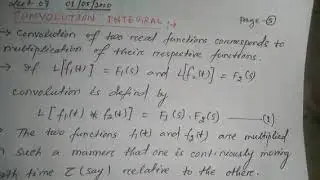 Lect-07 01/05/2020
CONVOLUTION INTEGRAL :- page-5
→ Convolution of two real functions corresponds to
multiplication of their respective functions.
→ If L[f₁(t)] = F₁(s) and L[f₂(t)] = F₂(s)
convolution is defind by
L[f₁(t) * f₂(t)] = F₁(s) . F₂(s) —
→ The two functions f₁(t) and f₂(t) are multiplied
such a manner that one is continuously moving
with time τ (say) relative to the other.